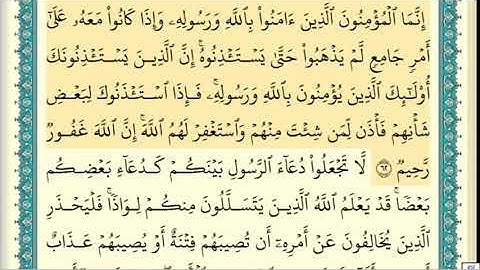 إِنَّمَا ٱلْمُؤْمِنُونَ ٱلَّذِينَ ءَامَنُوا۟ بِٱللَّهِ وَرَسُولِهِۦ وَإِذَا كَانُوا۟ مَعَهُۥ عَلَىٰٓ
أَمْرٍ جَامِعٍ لَّمْ يَذْهَبُوا۟ حَتَّىٰ يَسْتَـْٔذِنُوهُ ۚ إِنَّ ٱلَّذِينَ يَسْتَـْٔذِنُونَكَ
أُو۟لَـٰٓئِكَ ٱلَّذِينَ يُؤْمِنُونَ بِٱللَّهِ وَرَسُولِهِۦ ۚ فَإِذَا ٱسْتَـْٔذَنُوكَ لِبَعْضِ
شَأْنِهِمْ فَأْذَن لِّمَن شِئْتَ مِنْهُمْ وَٱسْتَغْفِرْ لَهُمُ ٱللَّهَ ۚ إِنَّ ٱللَّهَ غَفُورٌ
رَّحِيمٌ ٦٢ لَّا تَجْعَلُوا۟ دُعَآءَ ٱلرَّسُولِ بَيْنَكُمْ كَدُعَآءِ بَعْضِكُم
بَعْضًا ۚ قَدْ يَعْلَمُ ٱللَّهُ ٱلَّذِينَ يَتَسَلَّلُونَ مِنكُمْ لِوَاذًا ۚ فَلْيَحْذَرِ
ٱلَّذِينَ يُخَالِفُونَ عَنْ أَمْرِهِۦٓ أَن تُصِيبَهُمْ فِتْنَةٌ أَوْ يُصِيبَهُمْ عَذَابٌ